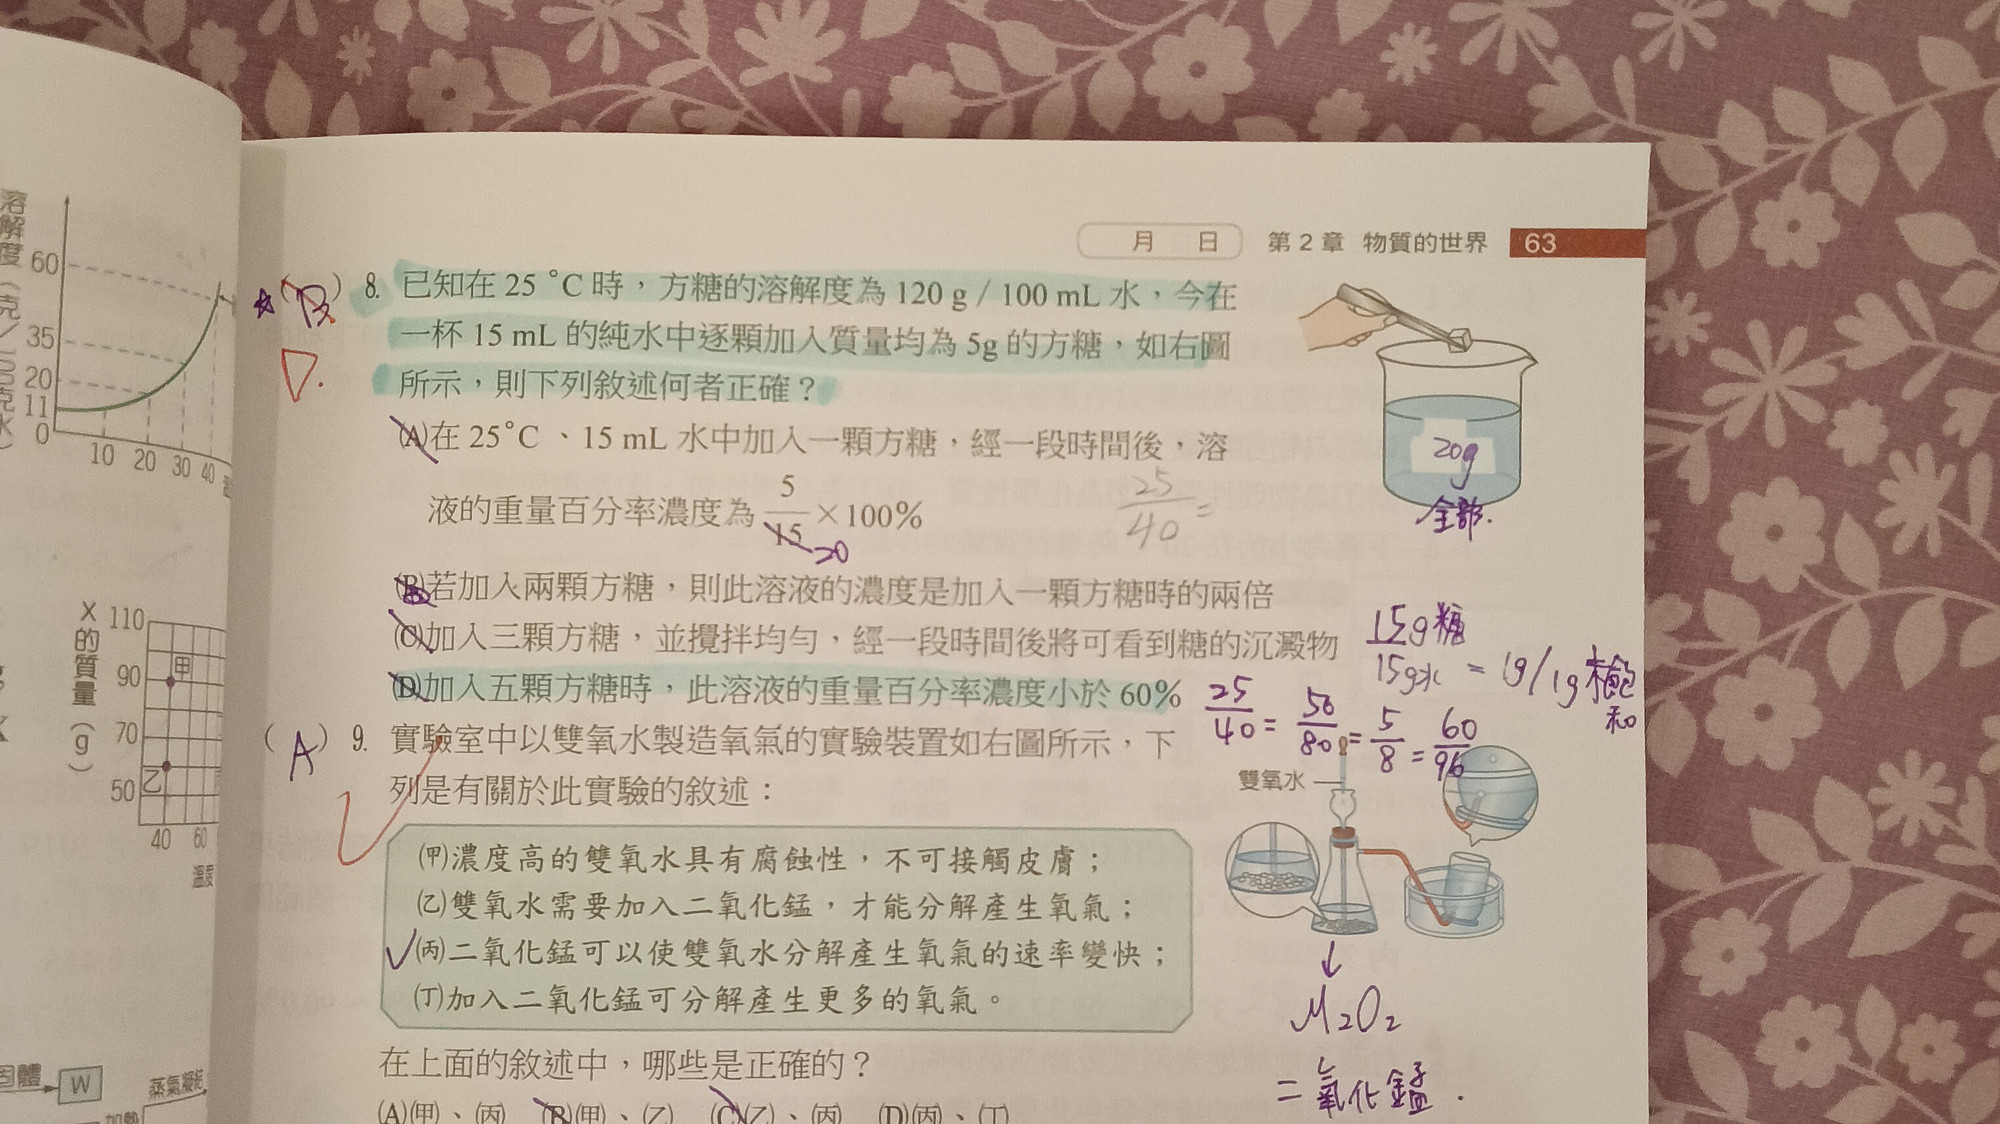 月 日 第2章 物質的世界 63
溶解度(克/100克水)
60
35
20
11
0
10 20 30 40
X的質量(g)
110
90
70
50
甲
乙
40 60
溫度
固體
W
蒸氣凝結
加熱
( ) 8. 已知在 25 °C 時，方糖的溶解度為 120 g / 100 mL 水，今在
一杯 15 mL 的純水中逐顆加入質量均為 5g 的方糖，如右圖
所示，則下列敘述何者正確？
(A)在 25°C 、15 mL 水中加入一顆方糖，經一段時間後，溶
液的重量百分率濃度為 5/15 ×100%
20
25/40 =
20g
全部.
(B)若加入兩顆方糖，則此溶液的濃度是加入一顆方糖時的兩倍
(C)加入三顆方糖，並攪拌均勻，經一段時間後將可看到糖的沉澱物
15g糖
15g水 = 1g/1g 未飽和
(D)加入五顆方糖時，此溶液的重量百分率濃度小於 60%
25/40 = 50/80 = 5/8 = 60/96
(A) 9. 實驗室中以雙氧水製造氧氣的實驗裝置如右圖所示，下
列是有關於此實驗的敘述：
雙氧水
(甲)濃度高的雙氧水具有腐蝕性，不可接觸皮膚；
(乙)雙氧水需要加入二氧化錳，才能分解產生氧氣；
(丙)二氧化錳可以使雙氧水分解產生氧氣的速率變快；
(丁)加入二氧化錳可分解產生更多的氧氣。
↓
M2O2
二氧化錳.
在上面的敘述中，哪些是正確的？
(A)(甲)、(丙) (B)(甲)、(乙) (C)(乙)、(丙) (D)(丙)、(丁)